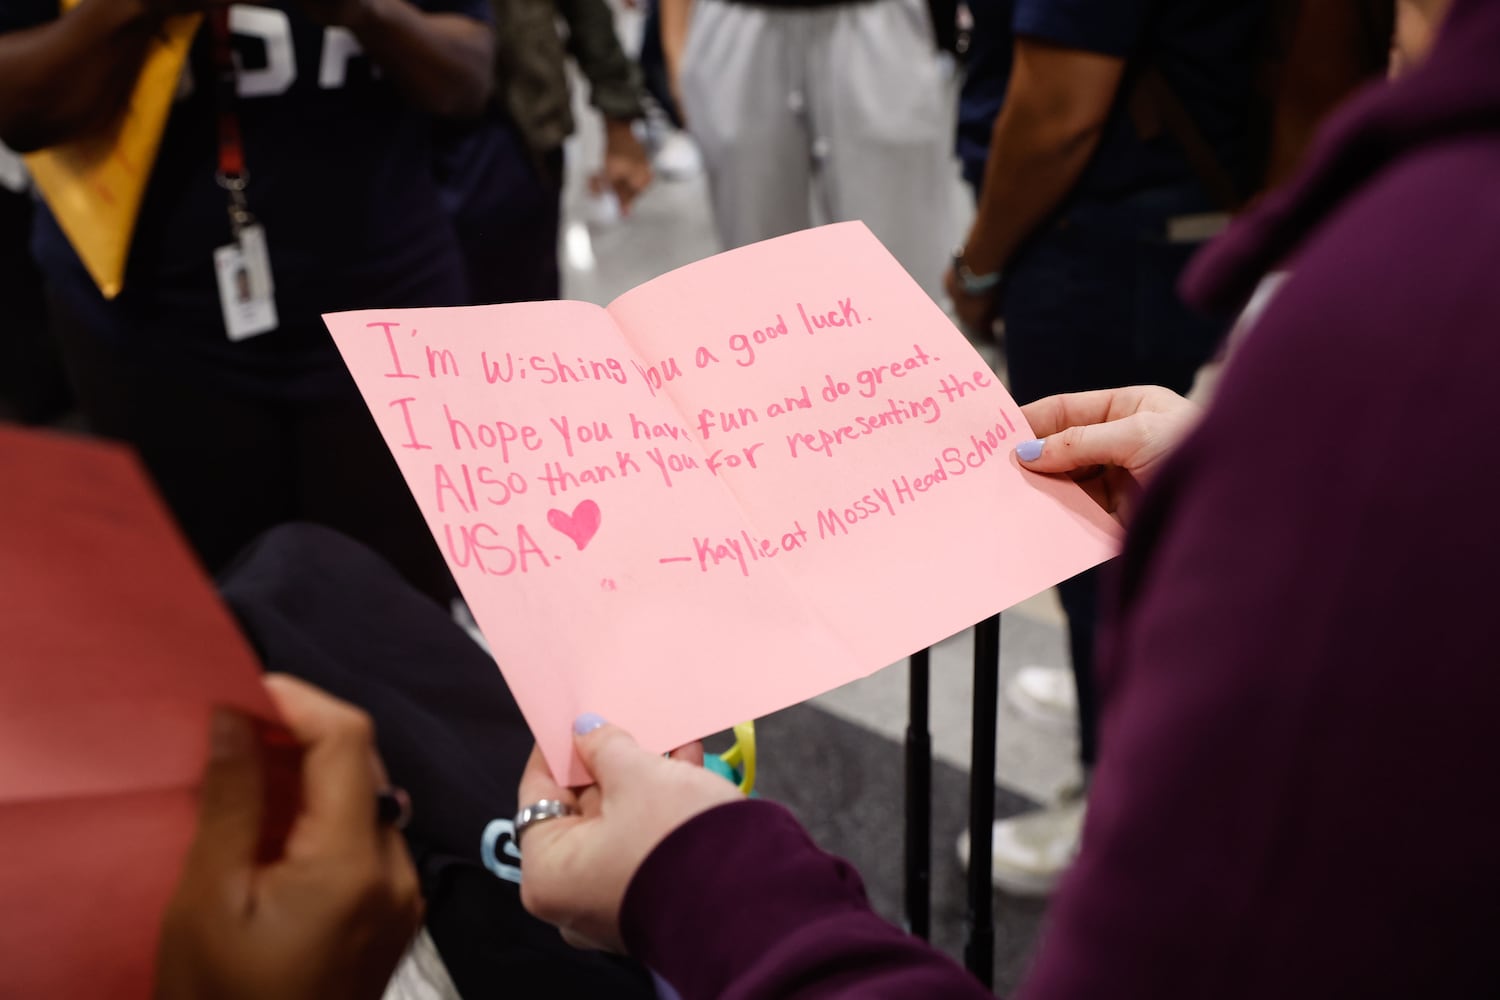 I'm wishing you a good luck.
I hope you have fun and do great.
Also thank you for representing the
USA.
-Kaylie at Mossy Head School